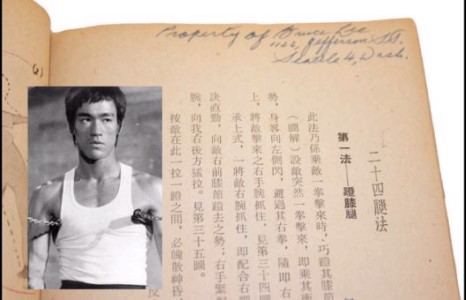 Property of Bruce Lee
1122, Jefferson St.
Seattle 4, Wash.
二十四腿法
第一法——蹬膝腿
此法乃係乘敵一拳擊來時,巧蹬其膝節
(圖解)設敵突然一拳擊來,即乘其
勢,身畧向左側閃,避過其右拳,隨即右
上,將敵擊來之右手腕抓住,見第三十四
承上式,一將敵右腕抓住,即配合右
決直勁,向敵右前膝節蹬去之勢,右手緊
腕,向我右後方猛拉。見第三十五圖。
按敵在此一拉一蹬之間,必魄散神
(2)